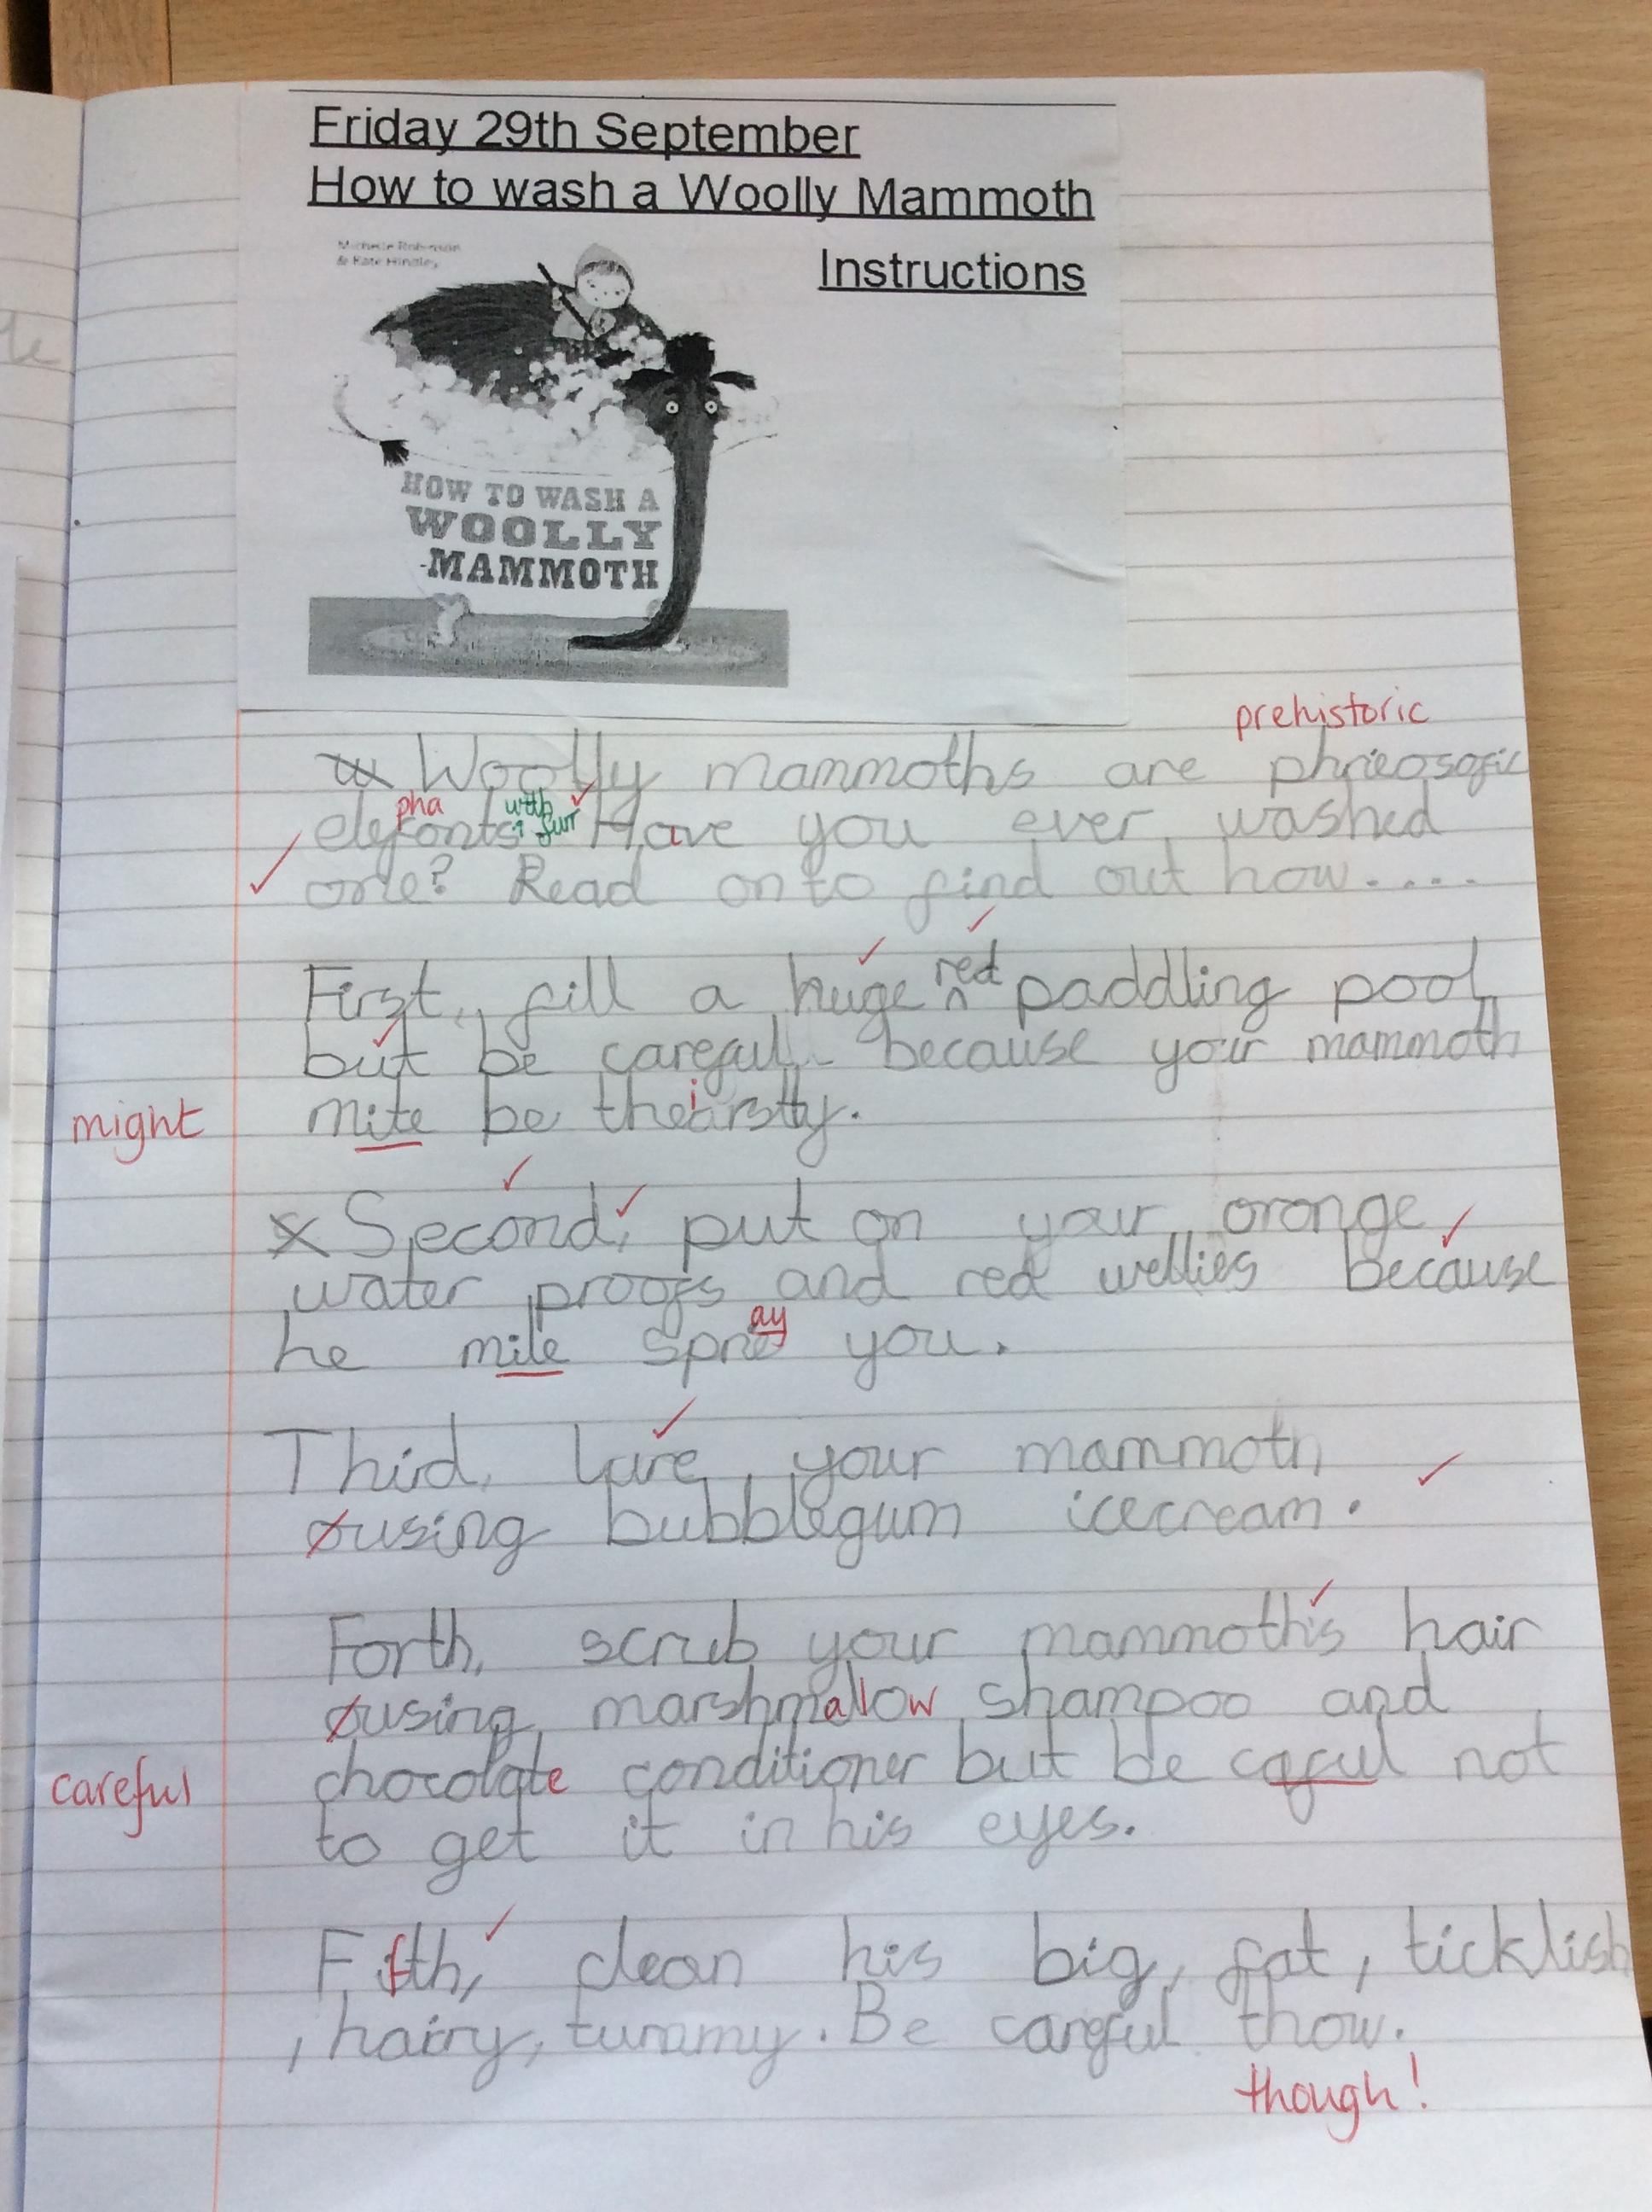 Friday 29th September
How to wash a Woolly Mammoth
Instructions
Michelle Robinson
& Kate Hindley
HOW TO WASH A
WOOLLY
MAMMOTH
prehistoric
w Woolly mammoths are phrieosofic
pha with fur
elefonts. Have you ever washed
one? Read on to find out how....
red
First, fill a huge paddling pool
but be careful because your mammoth
might mite be thearsty.
i
x Second, put on your orange
water proofs and red wellies because
ay
he mite spre you.
Third, lure your mammoth
using bubblegum icecream.
Forth, scrub your mammoth's hair
using marshmallow shampoo and
careful chocolate conditioner but be caful not
to get it in his eyes.
Fifth, clean his big, fat, ticklish
, hairy, tummy. Be careful thow.
though!